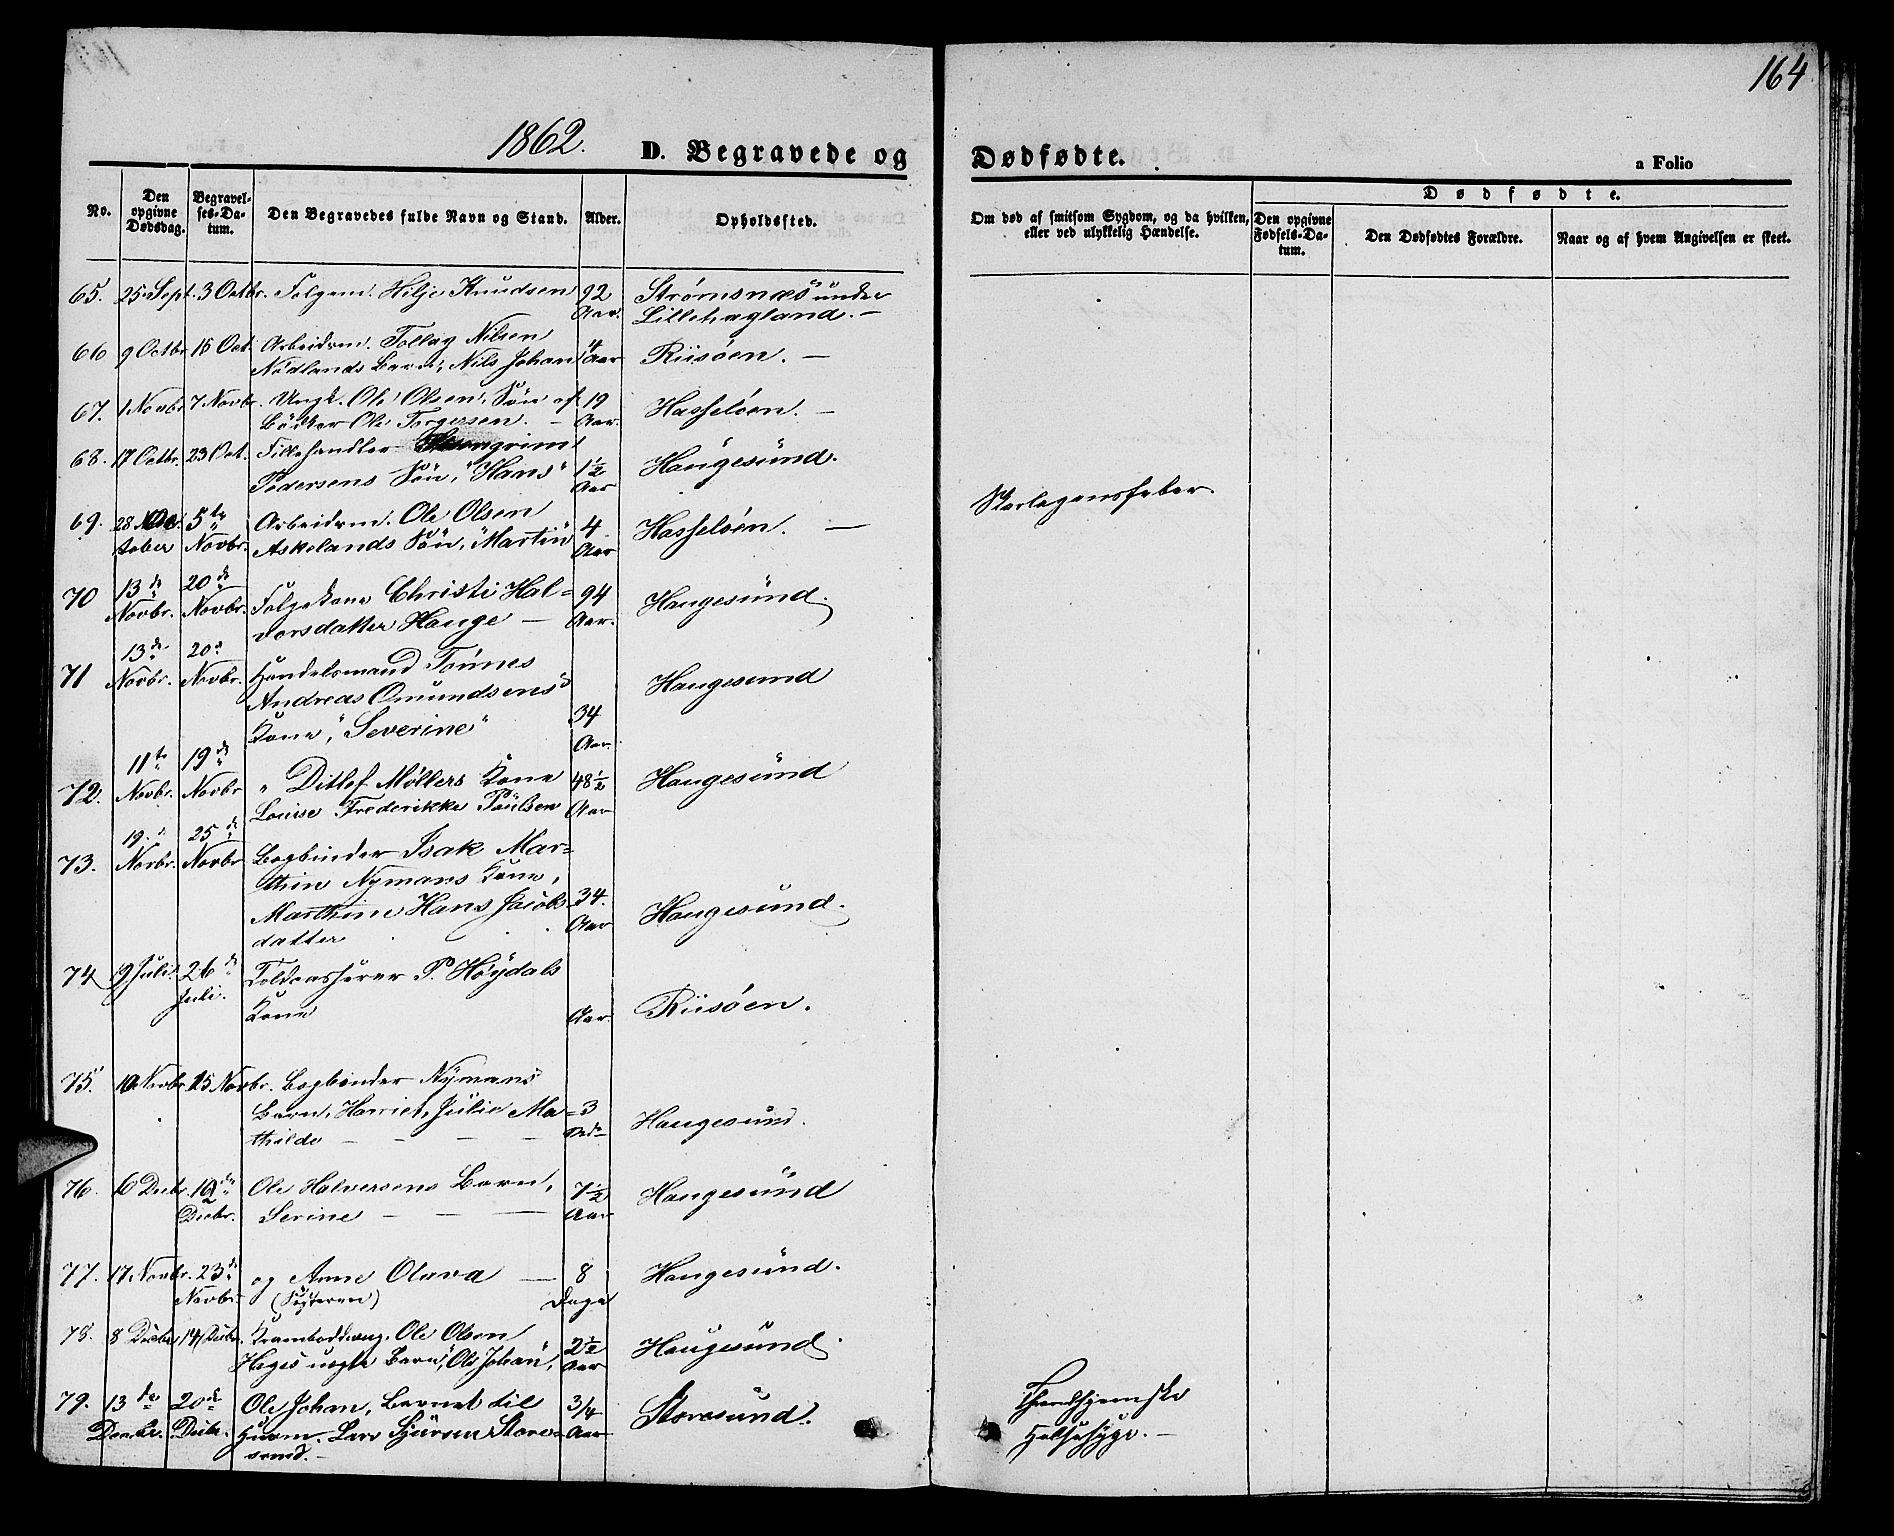 164
1862.
D. Begravede og Dødfødte.
a Folio
No.
Den opgivne Dødsdag.
Begravelses-Datum.
Den Begravedes fulde Navn og Stand.
Alder.
Opholdssted.
Om død af smitsom Sygdom, og da hvilken, eller ved ulykkelig Hændelse.
Dødfødte.
Den opgivne Fødsels-Datum.
Den Dødfødtes Forældre.
Naar og af hvem Angivelsen er skeet.
65. 25 Sept. 3 Octbr. Følgem. Hilje Knudsen 92 Strømsnæs under
Aar. Lillehagland. —
66 9 Octbr 15 Oct. Arbeidsm. Tollag Nilsen 4
Nødlands Barn, Nils Johan Aar Riisøen. —
67. 1 Novbr 7 Novbr. Ungk. Ole Olsen, Søn af 19 Hasseløen. —
Bødker Ole Torgersen. — Aar.
68. 17 Octbr. 23 Oct. Fillehandler
Pedersens Søn, "Hans" 1½ Aar Haugesund.
Skarlagensfeber.
69. 28 5te Arbeidsm. Ole Olsen 4 Hasseløen. —
tober Novbr. Askelands Søn, "Martin" Aar
70 13de 20de
Novbr. Novbr. Følgekone Christi Hal= 94 Haugesund.
vorsdatter Hauge — Aar.
13de 20de
71 Novbr. Novbr. Handelsmand Tönnes Haugesund
Andreas Omundsens
Kone, "Severine" 34 Aar.
11te 19de
72. Novbr. Novbr " Ditlef Møllers Kone 48½ Haugesund
Louise Frederikke Paulsen Aar
19. 25de
73. Novbr. Novbr Bogbinder Isak Mar=
thin Nymans Kone,
Marthine Hans Jacobs 34. Haugesund.
datter Aar
74 9 Juli. 26de Juli. Toldcasserer P. Höydals
Kone Aar. Riisöen.
75. 10 Novbr. 15 Novbr. Bogbinder Nymans
Barn, Harriet, Julie Ma= 3 Haugesund.
thilde — — — —
76. 6 Decbr. Ole Halversens Barn, 7½ Haugesund
Decbr. Serine — — — Aar
77. 17 Novbr. 23de og Anne Olava — 8 Haugesund.
Novbr. (Søsteren) Dage
78. 8 Decbr 14 Decbr. Kramboddreng. Ole Olsen 2½ Haugesund.
Hages uegte Barn, "Ole Johan", Aar
79. 13de 20de Ole Johan, Barnet til 3/4 Storesund.
Decbr. Decbr. Huusm. Lars Sjursen Store= Aar
sund. —
Throndhjemske
Halssyge. —